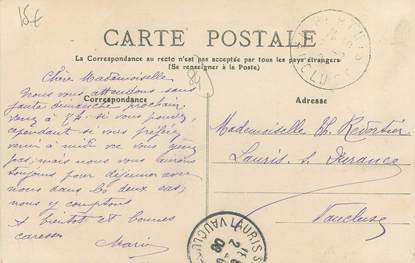 15€
CARTE POSTALE
La Correspondance au recto n'est pas acceptée par tous les pays étrangers
(Se renseigner à la Poste)
Correspondance
84
Chère Mademoiselle
Nous vous attendons sans
faute dimanche prochain,
venez à si vous pouvez,
cependant si vous préférez
venir à midi ne vous gênez
pas; mais nous vous aurons
toujours pour déjeuner avec
nous dans les deux cas;
nous y comptons
A bientôt et bonnes
caresses
Marie
Adresse
Mademoiselle Th. Redortier
Lauris s. Durance
Vaucluse
PERTUIS
VAUCLUSE
LAURIS
VAUCLUSE